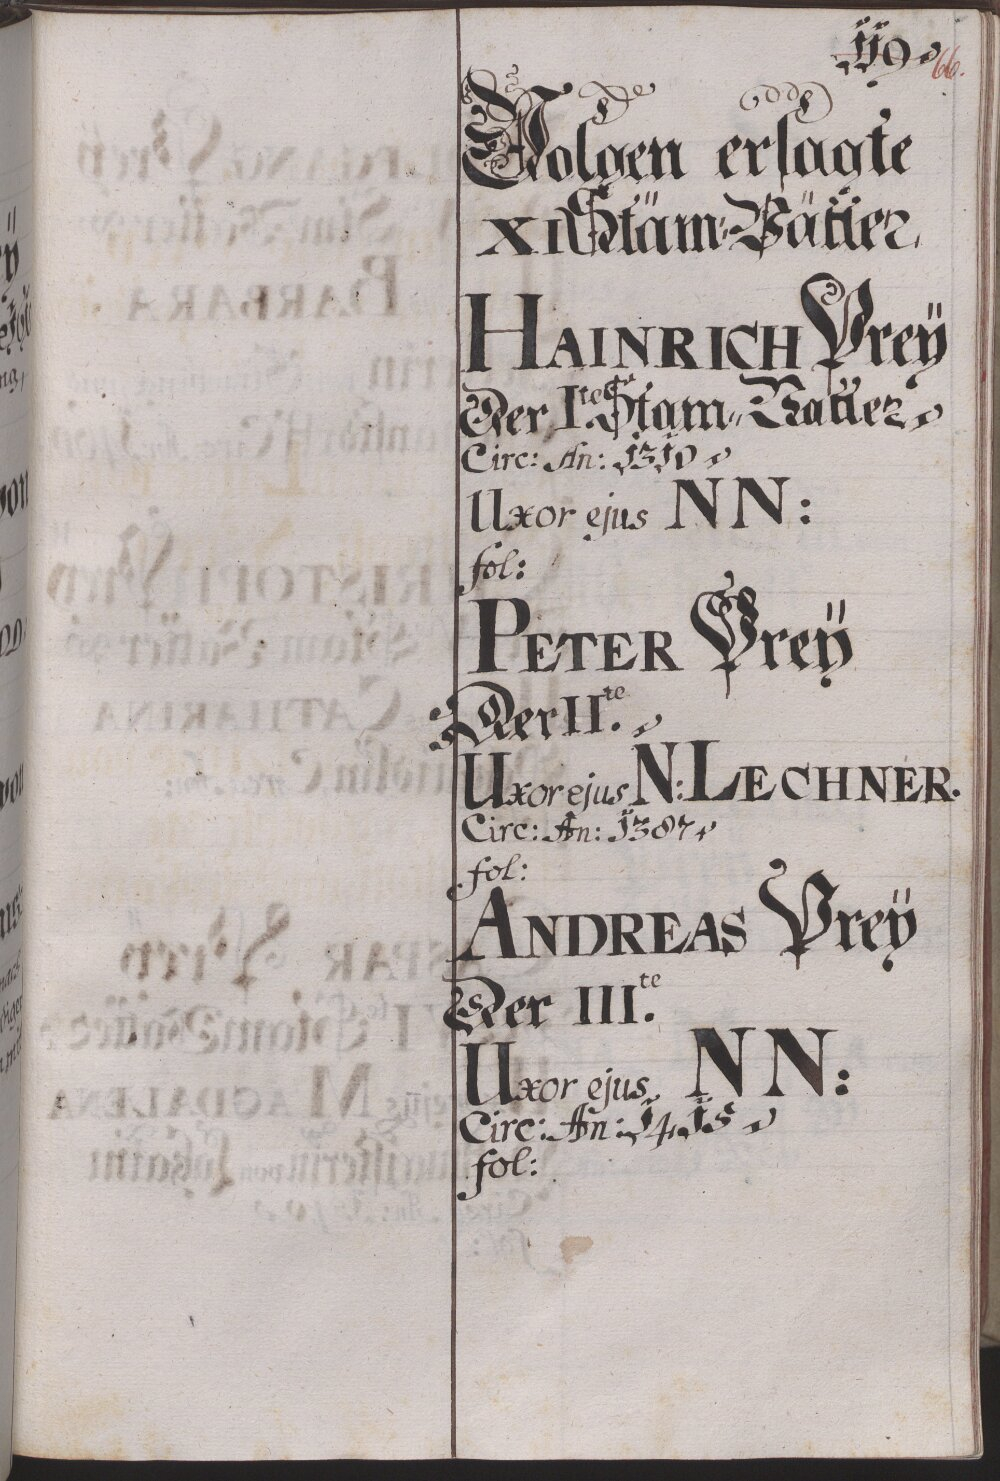 119
66.
Volgen ersagte
XI Stäm-Vätter
HAINRICH Preÿ
Der I.te Stam-Vatter
Circ: An: 1310
Uxor ejus NN:
fol:
PETER Preÿ
Der II.te
Uxor ejus N: LECHNER.
Circ: An: 1387
fol:
ANDREAS Preÿ
Der III.te
Uxor ejus NN:
Circ: An: 1415
fol: